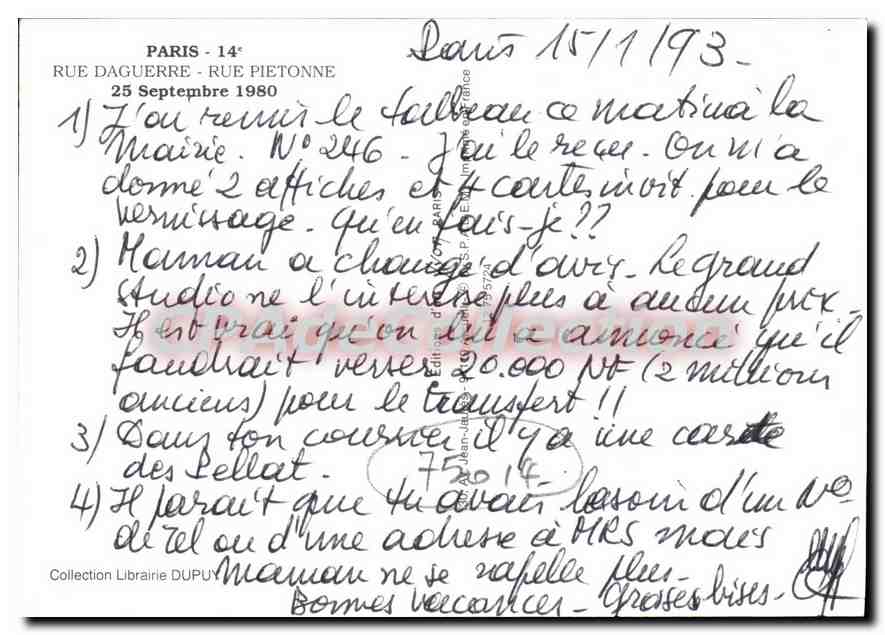 PARIS - 14e
RUE DAGUERRE - RUE PIETONNE
25 Septembre 1980
Paris 15/1/93-
1) J'ai remis le tableau ce matin à la
Mairie. No 246. J'ai le reçu. On m'a
donné 2 affiches et 4 cartes invit. pour le
vernissage. Qu'en fais-je??
2) Maman a changé d'avis. Le grand
studio ne l'intéresse plus à aucun prix.
Il est vrai qu'on lui a annoncé qu'il
faudrait verser 20.000 NF (2 millions
anciens) pour le transfert!!
3) Dans ton courrier il y a une carte
des Pellat.
75014
4) Il parait que tu avais besoin d'un No
de tel ou d'une adresse à MRS mais
Maman ne se rapelle plus-
Bonnes vacances- Grosses bises-
Collection Librairie DUPUY
CPAdeCollection
Imprimé en France
PARIS